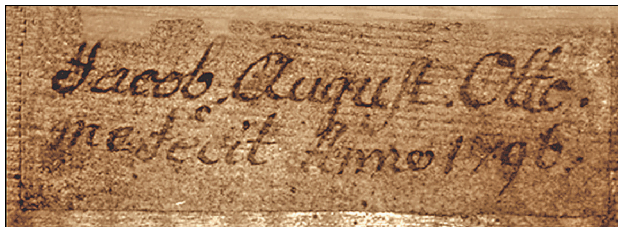 Jacob. Auguſt. Otto.
me fecit Anno 1796.